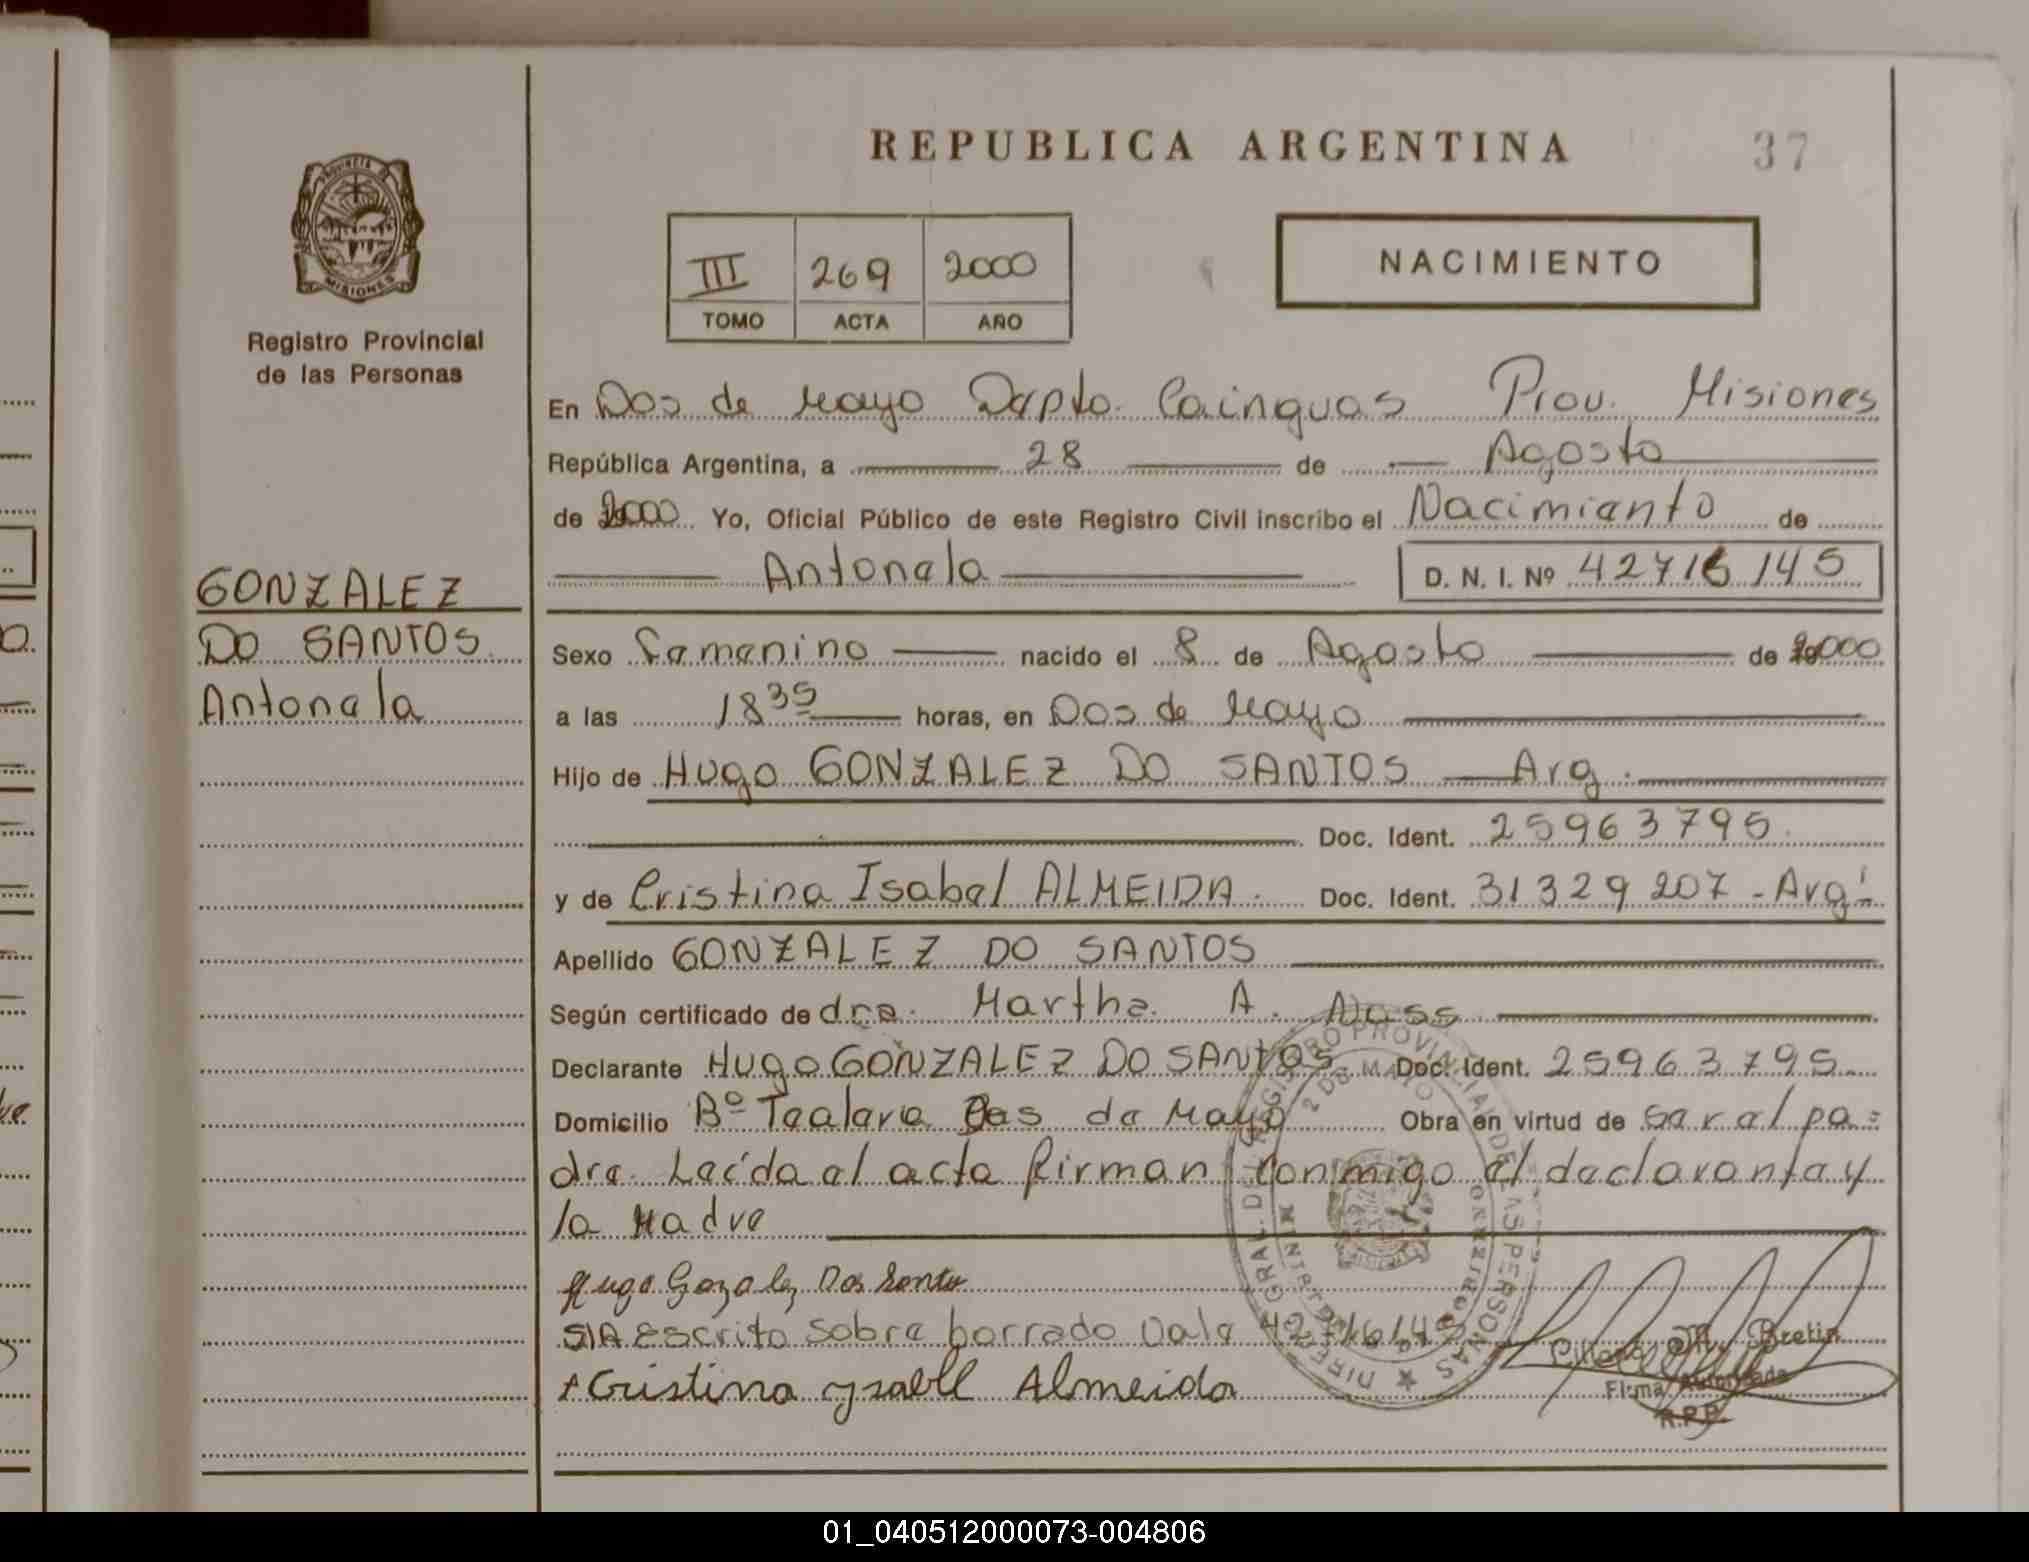 REPUBLICA ARGENTINA
37
PROVINCIA DE
MISIONES
Registro Provincial
de las Personas
III 269 2000
TOMO ACTA AÑO
NACIMIENTO
En Dos de Mayo Depto. Cainguas Prov. Misiones
República Argentina, a 28 de Agosto
de 2000 Yo, Oficial Público de este Registro Civil inscribo el Nacimiento de
Antonela D. N. I. Nº 42716145
GONZALEZ
DO SANTOS
Antonela
Sexo Femenino nacido el 8 de Agosto de 2000
a las 18 35 horas, en Dos de Mayo
Hijo de Hugo GONZALEZ DO SANTOS Arg.
Doc. Ident. 25963795.
y de Cristina Isabel ALMEIDA. Doc. Ident. 31329207 - Arg.
Apellido GONZALEZ DO SANTOS
Según certificado de dra. Martha A. Nass
Declarante HUgo GONZALEZ DO SANTOS Doc. Ident. 25963795.
Domicilio Bº Tealera Dos de Mayo Obra en virtud de ser el pa=
dre. Leída el acta firman conmigo el declarante y
la Madre
Hugo Gozalez Dos Santos
S/A Escrito sobre borrado Vale 42716145
+ Cristina ysabel Almeida
Bretin
Firma Autorizada
R.P.P.
01_040512000073-004806